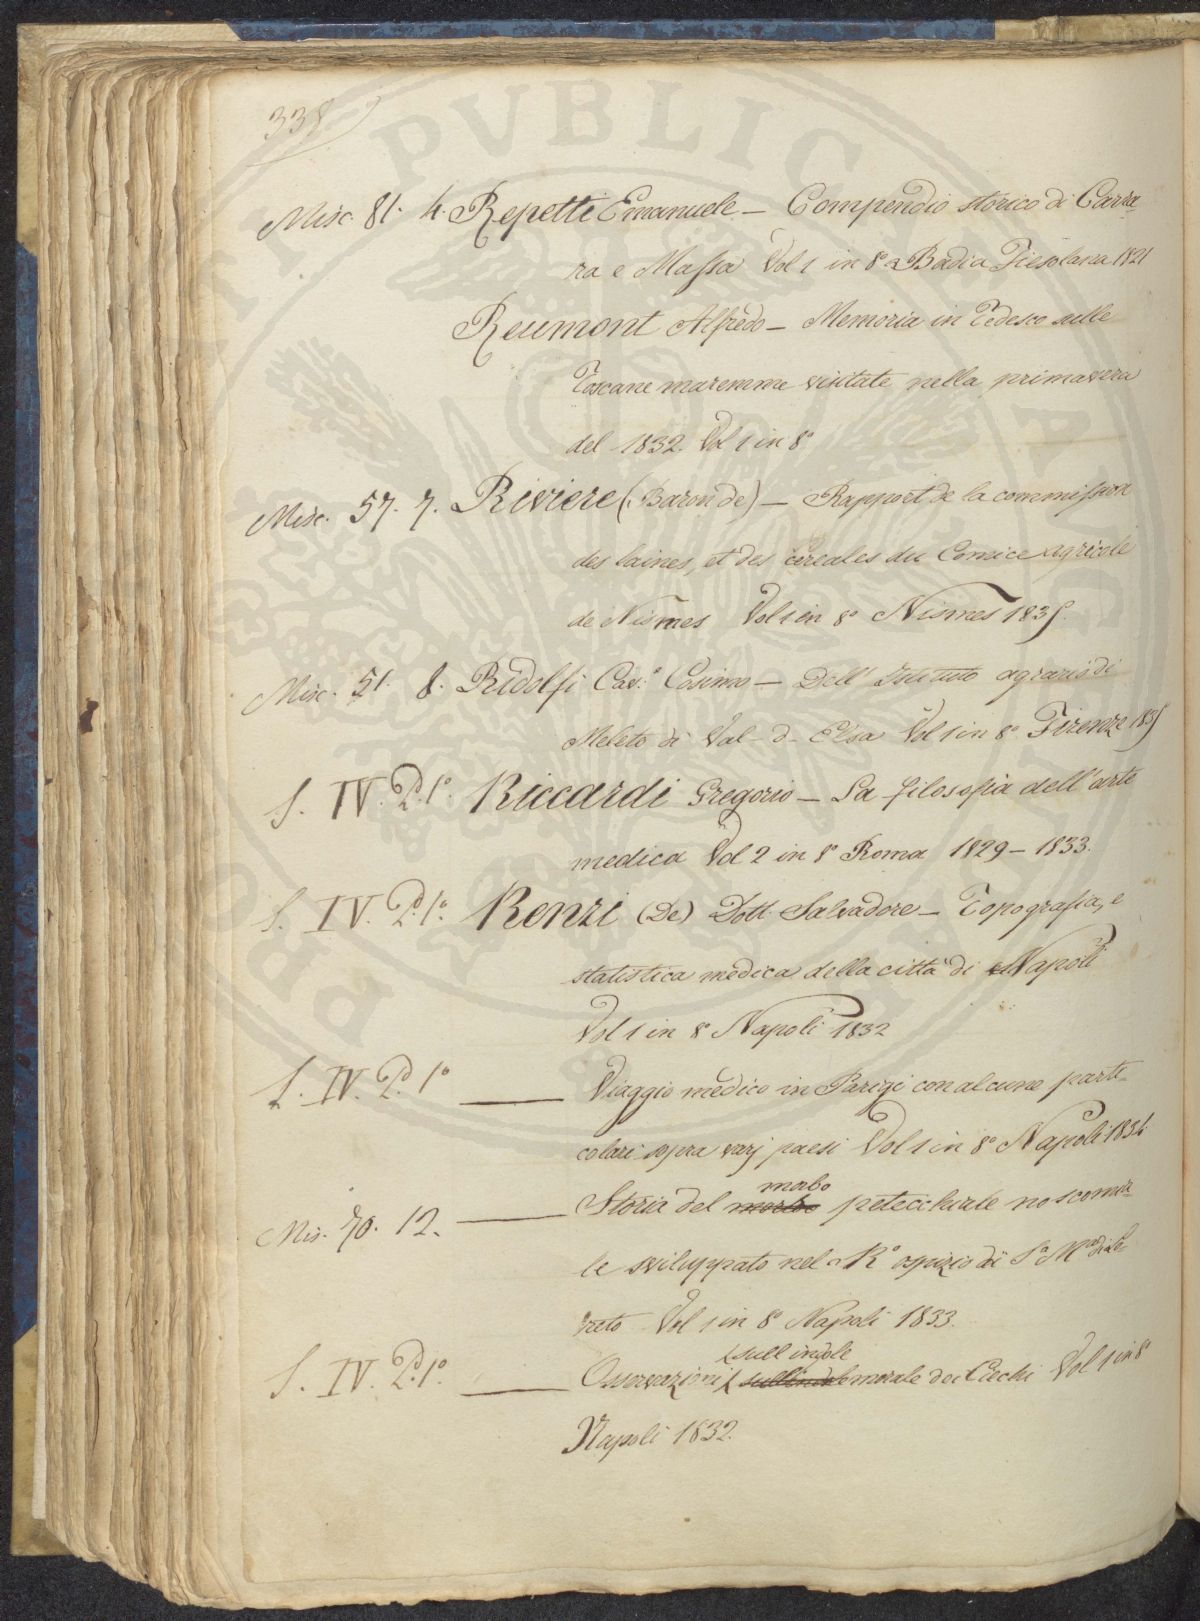 338
Misc. 81. 4. Repetti Emanuele – Compendio storico di Carra-
ra e Massa Vol 1 in 8º Badia Fiesolana 1821
Reumont Alfredo – Memoria in Tedesco sulle
Toscane maremme visitate nella primavera
del 1832. Vol 1 in 8º
Misc. 57. 7. Riviere (Baron de) – Rapport de la commission
des laines, et des cereales du Comice agricole
de Nismes Vol 1 in 8º Nismes 1835.
Misc. 51. 8. Ridolfi Cav.e Cosimo – Dell' Istituto agrario di
Meleto di Val-d-Elsa Vol 1 in 8º Firenze 1835
S. IV. P.d 1º. Riccardi Gregorio – La filosofia dell'arte
medica Vol 2 in 8º Roma 1829–1833.
S. IV. P.d 1º. Renzi (De) Dott. Salvadore – Topografia, e
statistica medica della città di Napoli
Vol 1 in 8º Napoli 1832
S. IV. P.d 1º — Viaggio medico in Parigi con alcune parti-
colari sopra varj paesi Vol 1 in 8º Napoli 1834
morbo
Mis. 70. 12. — Storia del morbo petecchiale noscomia-
le sviluppato nel R.º ospizio di S.a M.a di Lo-
reto Vol 1 in 8º Napoli 1833.
sull indole
S. IV. P.d 1º. — Osservazioni sull'indole morale dei Ciechi Vol 1 in 8º
Napoli 1832.